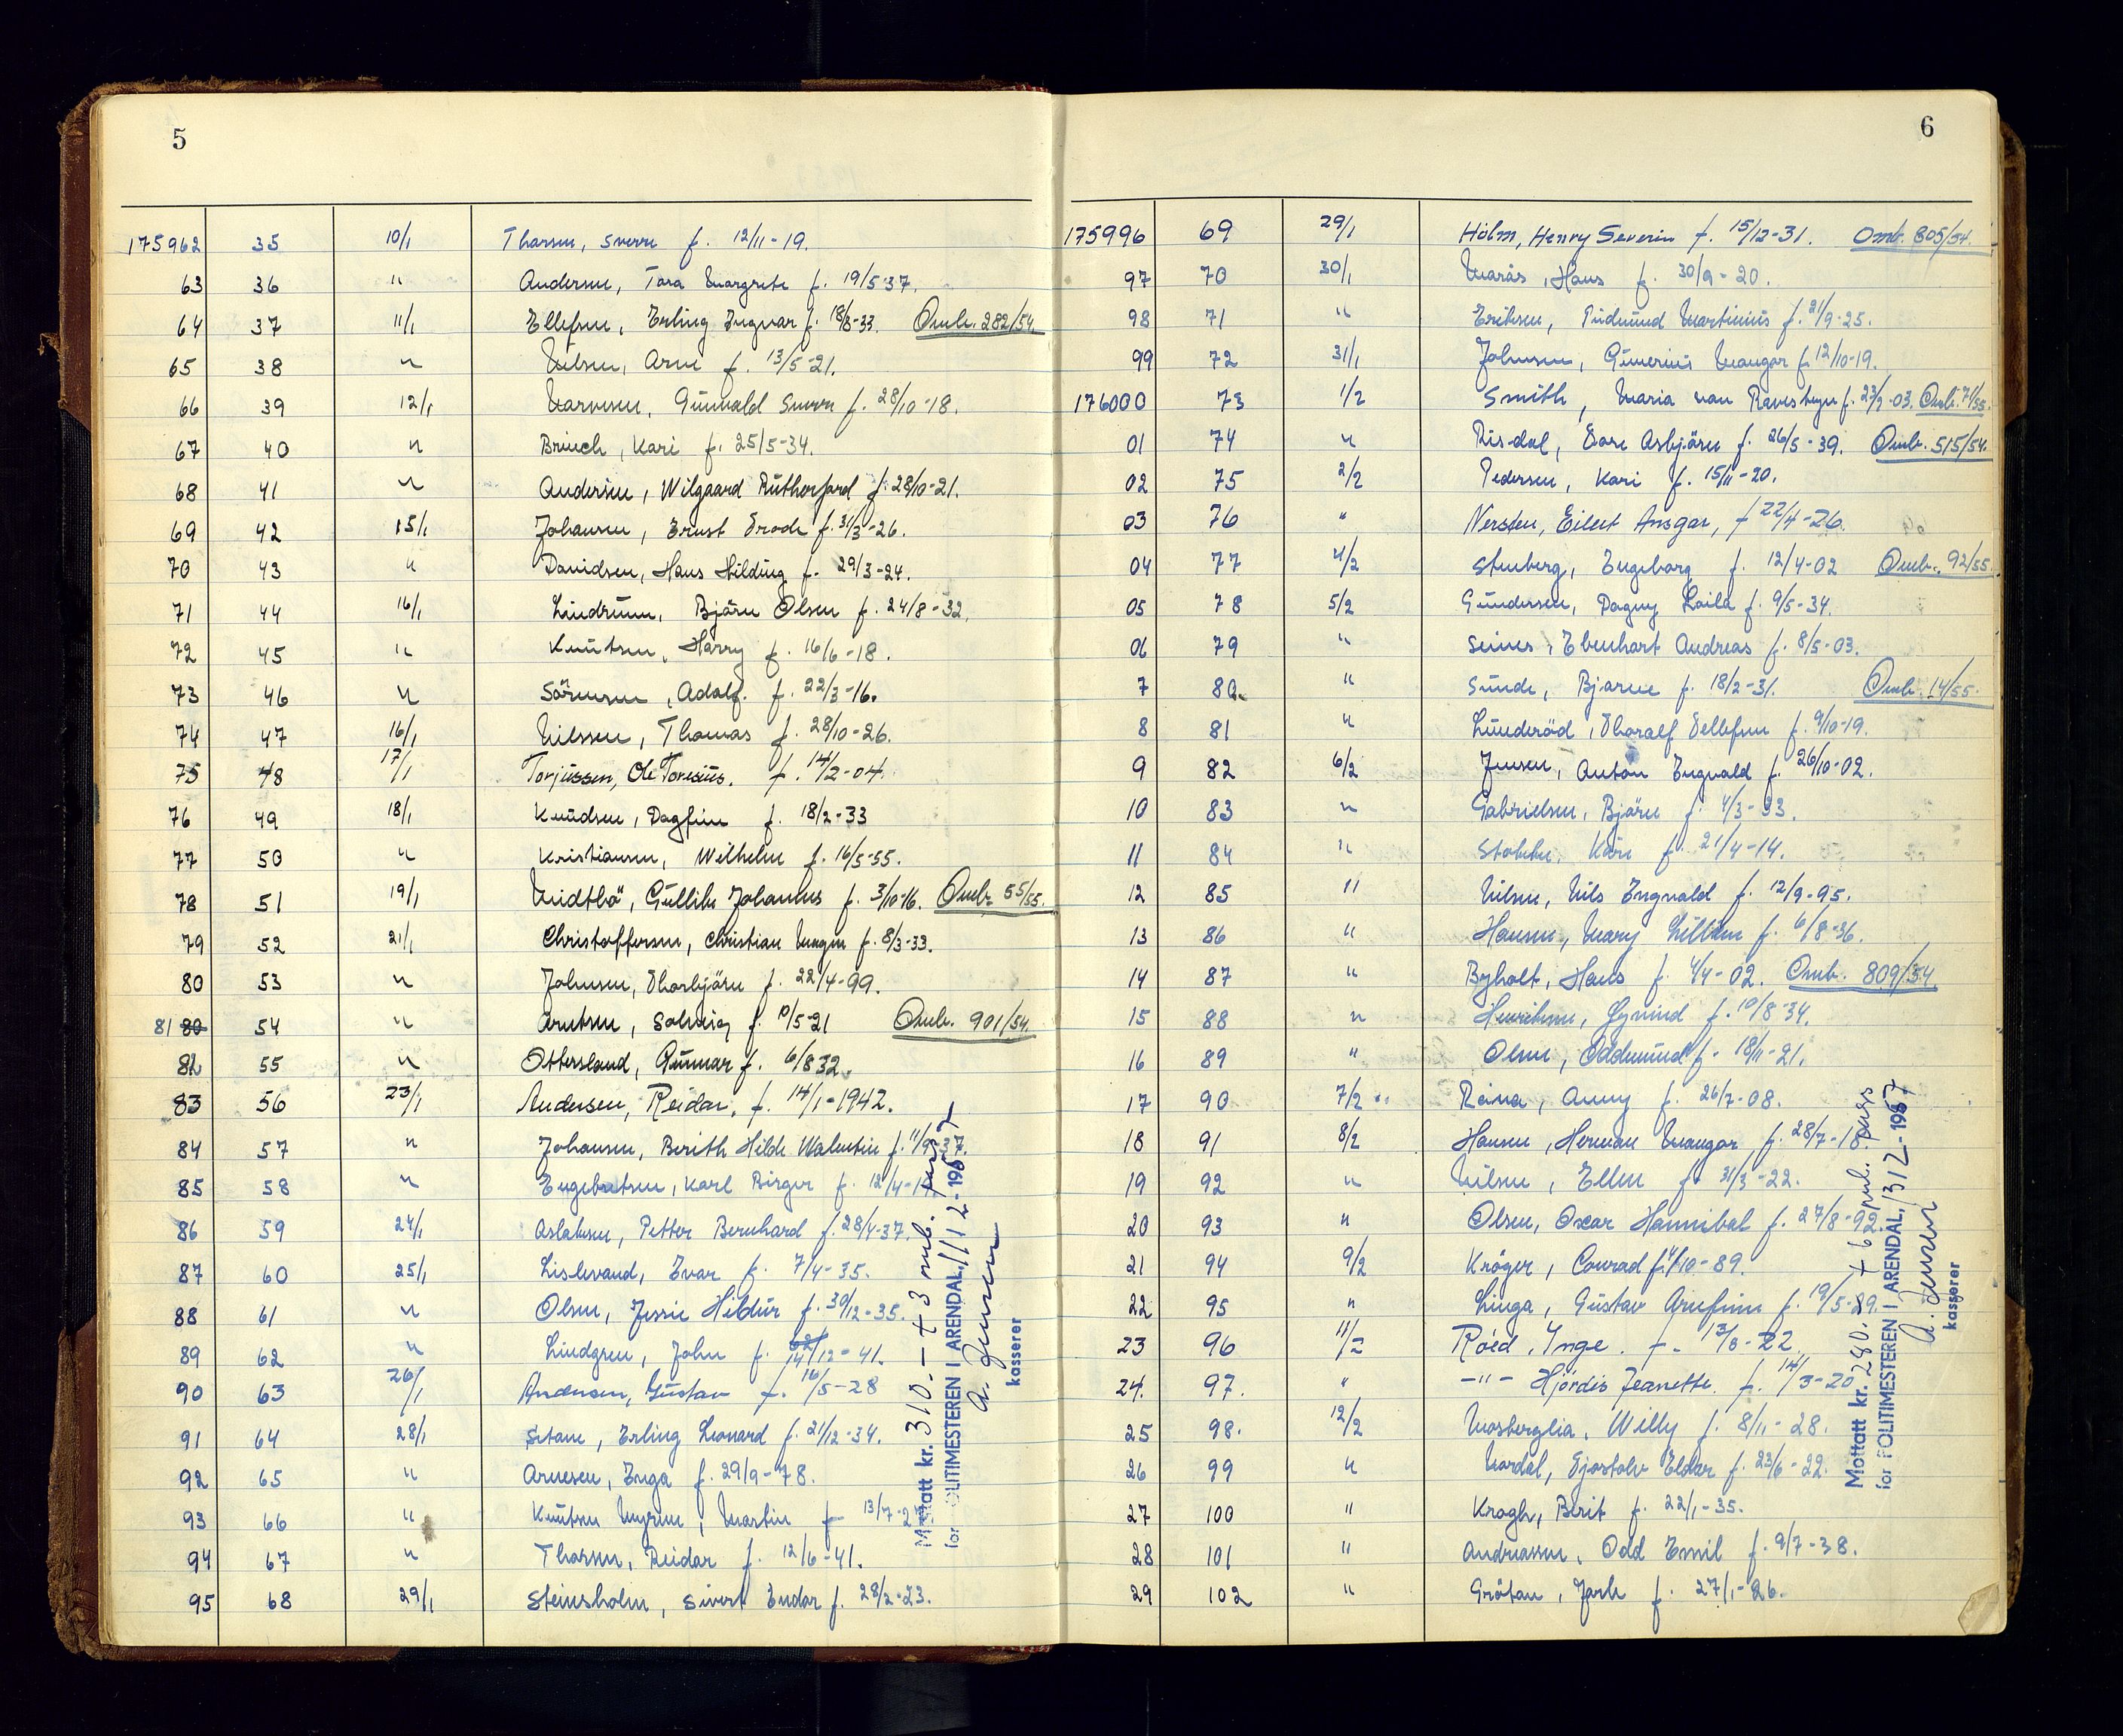 5
175962 35 10/1 Thorsen, Sverre f. 12/11-19.
63 36 " Andersen, Tora Margrete f. 19/5-37.
64 37 11/1 Ellefsen, Erling Ingvar f. 18/8-33. Omb. 282/54
65 38 " Nilsen, Arne f. 13/5-21.
66 39 12/1 Narvesen, Gunvald Sverre f. 28/10-18.
67 40 " Bruch, Kari f. 25/5-34.
68 41 " Andersen, Wilgaard Rutherford f. 28/10-21.
69 42 15/1 Johansen, Ernst Frode f. 31/3-26.
70 43 " Davidsen, Hans Hilding f. 29/3-24.
71 44 16/1 Lindtum, Bjørn Olsen f. 24/8-32.
72 45 " Knutsen, Harry f. 16/6-18.
73 46 " Sörensen, Adolf. f. 22/3-16.
74 47 16/1 Nilssen, Thomas f. 28/10-26.
75 48 17/1 Torjussen, Ole Toresius. f. 14/2-04.
76 49 18/1 Knudsen, Dagfinn f. 18/2-33
77 50 " Kristiansen, Wilhelm f. 16/5-55.
78 51 19/1 Midtbö, Gullik Johannes f. 3/10-16. Omb. 55/55.
79 52 21/1 Christoffersen, Christian Magne f. 8/3-33.
80 53 " Johnsen, Thorbjörn f. 22/4-99.
81 80 54 " Arntsen, Solveig f. 10/5-21 Omb. 901/54.
82 55 " Ottersland, Gunnar f. 6/8 32.
83 56 23/1 Andersen, Reidar, f. 14/1-1942.
84 57 " Johansen, Berith Hilde Walentin f. 11/9-37.
85 58 " Engebretsen, Karl Birger f. 12/4-
86 59 24/1 Aslaksen, Petter Bernhard f. 28/4-37.
87 60 25/1 Lislevand, Ivar f. 7/4-35.
88 61 " Olsen, Jessie Hildur f. 30/12-35.
89 62 " Lindgren, John f. 14/12-41.
90 63 26/1 Andersen, Gustav f. 16/5-28
91 64 28/1 Setane, Erling Leonard f. 21/12-34.
92 65 " Arnesen, Inga f. 29/9-78.
93 66 " Knutsen Myrene, Martin f 13/7-2
94 67 " Thorsen, Reidar f. 12/6-41.
95 68 29/1 Steinsholm, Sivert Endor f. 28/2-23.
Mottatt kr. 310.- + 3 omb. pass
for POLITIMESTEREN I ARENDAL, 11/2-1957
A. Jensen
kasserer
6
175996 69 29/1 Hölm, Henry Severin f. 15/12-31. Omb. 805/54.
97 70 30/1 Marås, Hans f. 30/9-20.
98 71 " Eriksen, Gudmund Martinius f. 21/9-25.
99 72 31/1 Johnsen, Gunerius Maugor f. 12/10-19.
176000 73 1/2 Smith, Maria van Ravesteyn f. 23/9-03. Omb. 71/55.
01 74 " Risdal, Tore Asbjörn f. 26/5-39. Omb. 515/54.
02 75 2/2 Pedersen, Kari f. 15/11-20.
03 76 " Nersten, Eilert Ansgar, f 22/4-26.
04 77 4/2 Stenberg, Ingeborg f. 12/4-02 Omb. 92/55.
05 78 5/2 Gundersen, Dagny Laila f. 9/5-34.
06 79 " Seines, Ebenhart Andreas f. 8/5-03.
7 80. " Sunde, Bjarne f. 18/2-31. Omb. 14/55.
8 81 " Lunderöd, Thoralf Tellefsen f. 9/10-19.
9 82 6/2 Jensen, Anton Ingvald f. 26/10-02.
10 83 " Gabrielsen, Bjørn f. 4/3-33.
11 84 " Stokke, Kåre f. 21/4-14.
12 85 " Nilsen, Nils Ingvald f. 12/9-95.
13 86 " Hansen, Mary Lillian f. 6/8-36.
14 87 " Byholt, Hans f. 4/4-02. Omb. 809/54.
15 88 " Henriksen, Öyvind f. 10/8-34.
16 89 " Olsen, Oddmund f. 18/11-21.
17 90 7/2 " Reina, Anny f. 26/7-08.
18 91 8/2 Hansen, Herman Maugor f. 28/7-18.
19 92 " Nilsen, Ellen f. 31/3-22.
20 93 " Olsen, Oscar Hannibal f. 27/8-92.
21 94 9/2 Kröger, Conrad f. 4/10-89.
22 95 " Linga, Gustav Arnfinn f. 19/5-29.
23 96 11/2 Röed, Inge. f. 13/8-22.
24. 97. " -"- Hjördis Jeanette. f. 14/3-20
25 98. 12/2 Mosberglia, Willy f. 8/11-28.
26 99 " Nordal, Gjostolv Eldar f. 23/6-22.
27 100 " Krogh, Berit f. 22/1-35.
28 101 " Andreassen, Odd Emil f. 9/7-38.
29 102 " Gråtan, Jarle f. 27/1-26.
Mottatt kr. 280.- + 6 omb. pass
for POLITIMESTEREN I ARENDAL, 13/2-1957
A. Jensen
kasserer